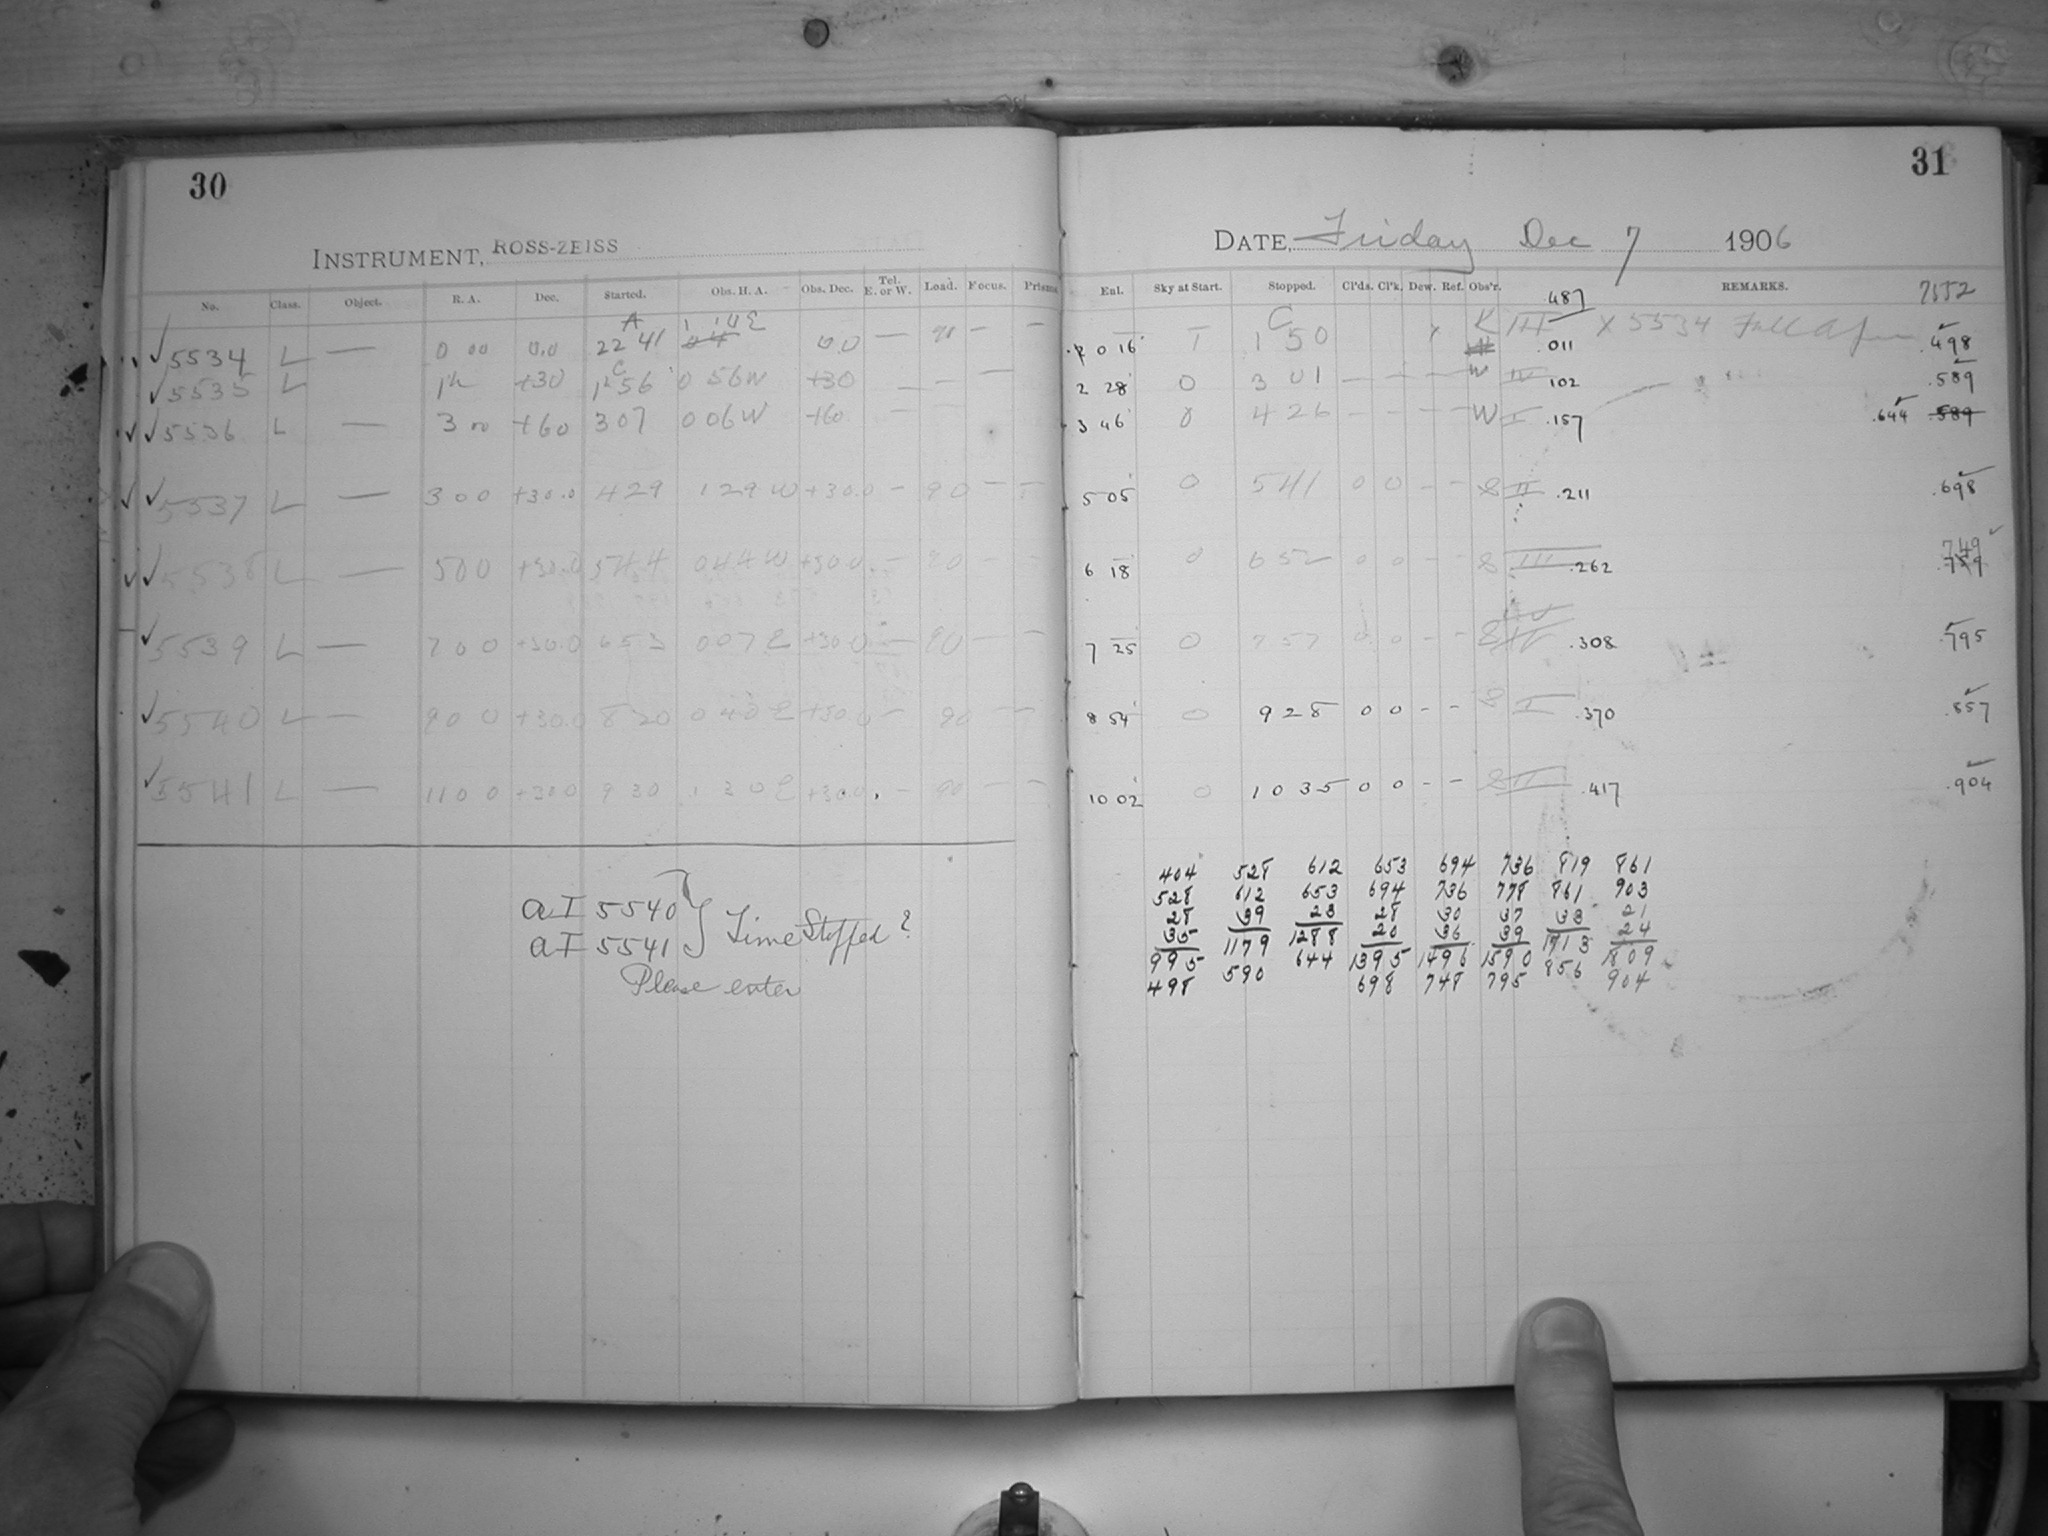 30
INSTRUMENT, ROSS-ZEISS
No. Class. Object. R. A. Dec. Started. Obs. H. A. Obs. Dec. Tel. E. or W. Load. Focus. Prisms
A
✓ 5534 L — 0 00 0.0 22 41 0.0 — 90 — —
C
✓ 5535 L 1h +30 1 56 0 56 W +30 — — —
✓✓ 5536 L — 3 00 +60 3 07 0 06 W +60 —
✓✓ 5537 L — 3 00 +30.0 4 29 1 29 W +30.0 — 90 — —
✓✓ 5538 L — 5 00 +30.0 5 44 0 44 W +30.0 — 90 — —
✓ 5539 L — 7 00 +30.0 6 53 0 07 E +30.0 — 90 — —
✓ 5540 L — 9 00 +30.0 8 20 0 40 E +30.0 — 90 — —
✓ 5541 L — 11 00 +30.0 9 30 1 30 E +30.0 — 90 — —
a I 5540 } Time Stopped?
a I 5541
Please enter
31
DATE, Friday Dec 7 1906
Ent. Sky at Start. Stopped. Cl'ds. Cl'k. Dew. Ref. Obs'r. REMARKS.
.487 7552
C
0 16 T 1 50 K III .011 X 5534 Fall a .498
2 28 0 3 01 — — — — W IV .102 .589
3 46 0 4 26 — — — — W I .157 .644 .589
5 05 0 5 41 0 0 — — S II .211 .698
749
6 18 0 6 52 0 0 — — S III .262 .759
7 25 0 7 57 0 0 — — S IV .308 .795
8 54 0 9 28 0 0 — — S I .370 .857
10 02 0 10 35 0 0 — — S II .417 .904
404 528 612 653 694 736 819 861
528 612 653 694 736 778 861 903
28 39 23 28 30 37 33 21
35 1179 1288 20 36 39 1713 24
995 590 644 1395 1496 1590 856 1809
498 698 748 795 904